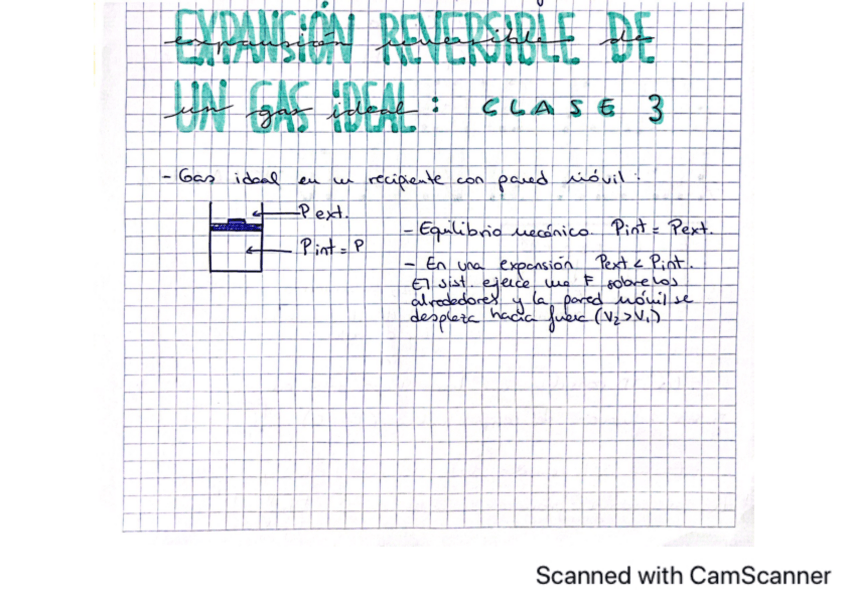 EXPANSIÓN REVERSIBLE DE
UN GAS IDEAL: CLASE 3
- Gas ideal en un recipiente con pared móvil:
P ext.
P int = P
- Equilibrio mecánico. Pint = Pext.
- En una expansión Pext < Pint.
El sist. ejerce una F sobre los
alrededores y la pared móvil se
desplaza hacia fuera (V₂>V₁)
Scanned with CamScanner